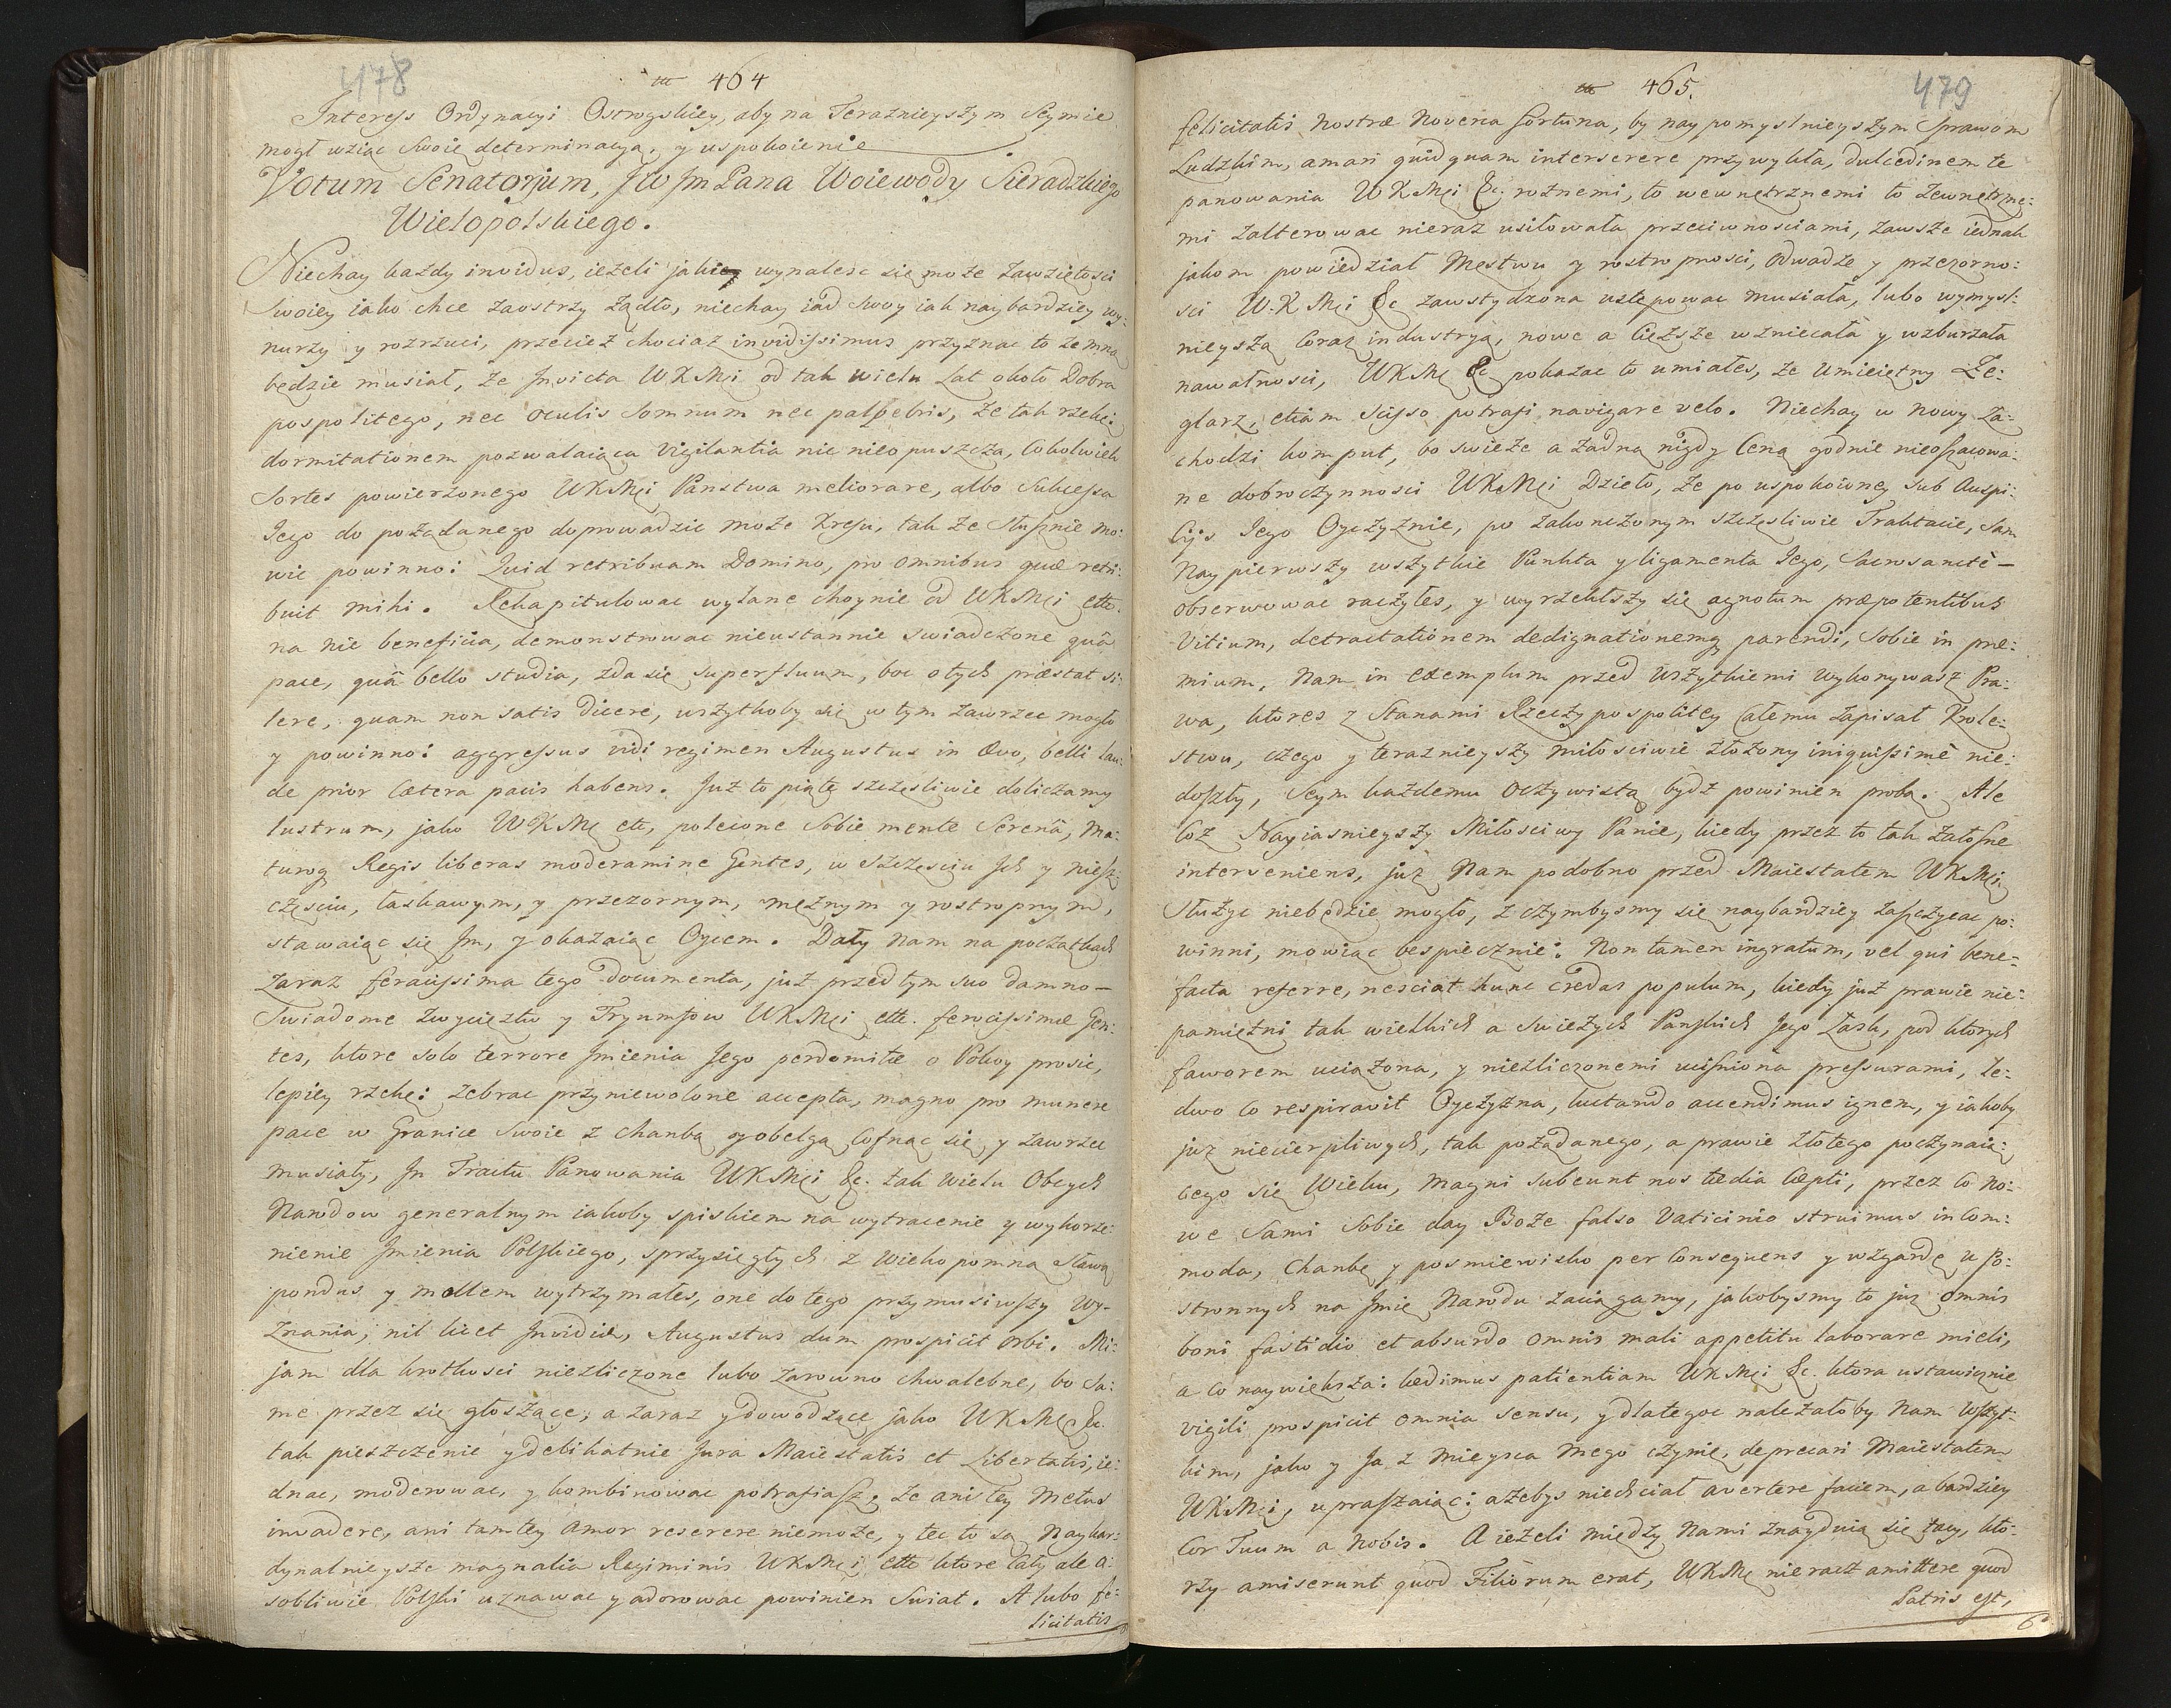 478
464
Interess Ordynacyi Ostrogskiey, aby na Teraznieyszym Seymie
mogł wziąc Swoię determinacyą, y uspokoienie
Votum Senatorjum, JW Jm Pana Woiewody Sieradzkiego
Wielopolskiego.
Niechay każdy invidus, ieżeli jakiey wynalesc się może Zawziętosci
Swoiey iako chce zaostrzy żądło, niechay iad Swoy iak naybardziey wy:
nurzy y rozrzuci, przecież chociaż invidissimus przyznac to ze mną
będzie musiał, że Invicta WKMci od tak wielu Lat około Dobra
pospolitego, nec oculis Somnum nec palpebris, że tak rzekę:
dormitationem pozwalaiąca Vigilantia nic nieopuszcza, Cokolwiek
Sortes powierzonego WKMci Panstwa meliorare, albo Sukcessa
Jego do pożądanego doprowadzic może Kresu, tak że Słusznie mo:
wic powinno: Quid retribuam Domino, pro omnibus quæ retri:
buit mihi. Rekapitulowac wylane choynie od WKMci ettc
na nie beneficia, demonstrowac nieustannie swiadczone quâ
pace, quâ bello studia, zda się superfluum, boc o tych præstat si:
lere, quam non satis dicere, wszytkoby się w tym zawrzec mogło
y powinno: aggressus vidi regimen Augustus in Ævo, belli lau:
de prior Cætera pacis habens. Już to piąte szczęsliwie doliczamy
lustrum, jako WKMc etc, polecone Sobie mente Serenâ, Ma:
turoq Regis liberas moderamine Gentes, w szczęsciu Jch y niesz:
częsciu, łaskawym, y przezornym, mężnym y rostropnym,
stawaiąc się Jm, y okazaiąc Oycem. Dały nam na początkach
zaraz feracissima tego documenta, już przed tym suo damno
Swiadome zwycięztw y Tryumfow WKMci ettc. ferocissimæ Gen:
tes, ktore solo terrore Jmienia Jego perdomitæ o Pokoy prosic,
lepiey rzekę: żebrac przyniewolone accepta, magno pro munere
pace w Granice Swoie z chanbą y obelgą Cofnąc się y zawrzec
musiały, Jn Tractu Panowania WKMci &c. tak wielu Obcych
Narodow generalnym iakoby spiskiem na wytracenie y wykorze:
nienie Jmienia Polskiego, sprzysięgłych z Wiekopomną Sławą
pondus y molem wytrzymałes, one do tego przymusiwszy Wy-
znania, nil licet Invidiæ, Augustus dum prospicit Orbi. Mi:
jam dla krotkosci niezliczone lubo zarowno chwalebne, bo Sa:
me przez się głoszące, a zaraz y dowodzące jako WKMc &c.
tak pieszczenie y delikatnie Jura Maiestatis et Libertatis, ie:
dnac, moderowac, y kombinowac potrafiasz, że ani tey Metus
invadere, ani tamtey Amor reserere niemoże, y tec to są Naykar:
dynalnieysze magnalia Regiminis WKMci ettc ktore Cały ale a:
sobliwie Polski uznawac y adorowac powinien Swiat. A lubo fe:
licitatis
465.
479
felicitatis Nostræ Noverca fortuna, by naypomyslnieyszym Sprawom
Ludzkim, amari quidquam interserere przywykła, dulcedinem te
panowania WKMci &c. rożnemi, to wewnętrznemi to zewnętrzne:
mi zalterowac nieraz usiłowała przeciwnosciami, zawsze iednak
jakom powiedział Męstwu y rostropnosci, Odwadze y przezorno:
sci W.K.Mci &c zawstydzona ustępowac musiała, lubo wymysl:
nieyszą Coraz industryą, nowe a Cięższe wzniecała y wzburzała
nawałnosci, WKMc &c pokazac to umiałes, że Umieiętny Że:
glarz, etiam Scisso potrafi navigare velo. Niechay w Nowy za:
chodzi komput, bo swieże a żadną nigdy Ceną godnie nieoszacowa:
ne dobroczynnosci WKMci Dzieło, że po uspokoioney Sub Auspi:
Cijs Jego Oyczyznie, po zakonczonym szczęsliwie Traktacie, Sam
Naypierwszy wszytkie Punkta y ligamenta Jego, Sacrosanctè
obserwowac raczyłes, y wyrzekłszy się agnotum præpotentibus
Vitium, detractationem dedignationemq parendi, Sobie in præ:
mium, Nam in exemplum przed wszytkiemi wykonywasz Pra:
wa, ktores z Stanami Rzeczypospolitey Całemu zapisał Krole:
stwu, czego y teraznieyszy miłosciwie złożony iniquissimè nie:
doszły, Seym każdemu Oczywistą bydz powinien probą. Ale
Coz Nayiasnieyszy Miłosciwy Panie, kiedy przez to tak żałosne
interveniens, już Nam podobno przed Maiestatem WKMci
Służyc niebędzie mogło, z czymbysmy się naybardziey zaszczycac po:
winni, mowiąc bespiecznie: Non tamen ingratum, vel qui bene-
facta referre, nesciat hunc credas populum, kiedy już prawie nie:
pamiętni tak wielkich a Swieżych Panskich Jego Łask, pod ktorych
faworem uciążona, y niezliczonemi ucisniona pressurami, le:
dwo Co respiravit Oyczyzna, luctando accendimus ignem, y iakoby
już niecierpliwych, tak pożądanego, a prawie złotego poczynaią:
cego się Wieku, magni subeunt nos tædia Cæpti, przez Co No:
we Sami Sobie day Boże falso Vaticinio struimus inCom:
moda, Chanbę y posmiewisko per Consequens y wzgardę u Po:
stronnych na Jmię Narodu zaciągamy, jakobysmy to już omnis
boni fastidio et absurdo omnis mali appetitu laborare mieli,
a Co naywiększa: lædimus patientiam WKMci &c. ktora ustawicznie
vigili prospicit omnia sensu, y dlategoc należałoby Nam wszyt:
kim, jako y Ja z mieysca Mego czynię, deprecari Maiestatem
WKMci, upraszaiąc: ażebys niechciał avertere faciem, a bardziey
Cor Tuum a Nobis. A ieżeli między Nami znayduią się tacy, kto-
rzy amiserunt quod Filiorum erat, WKMc nieracz amittere quod
Patris est,